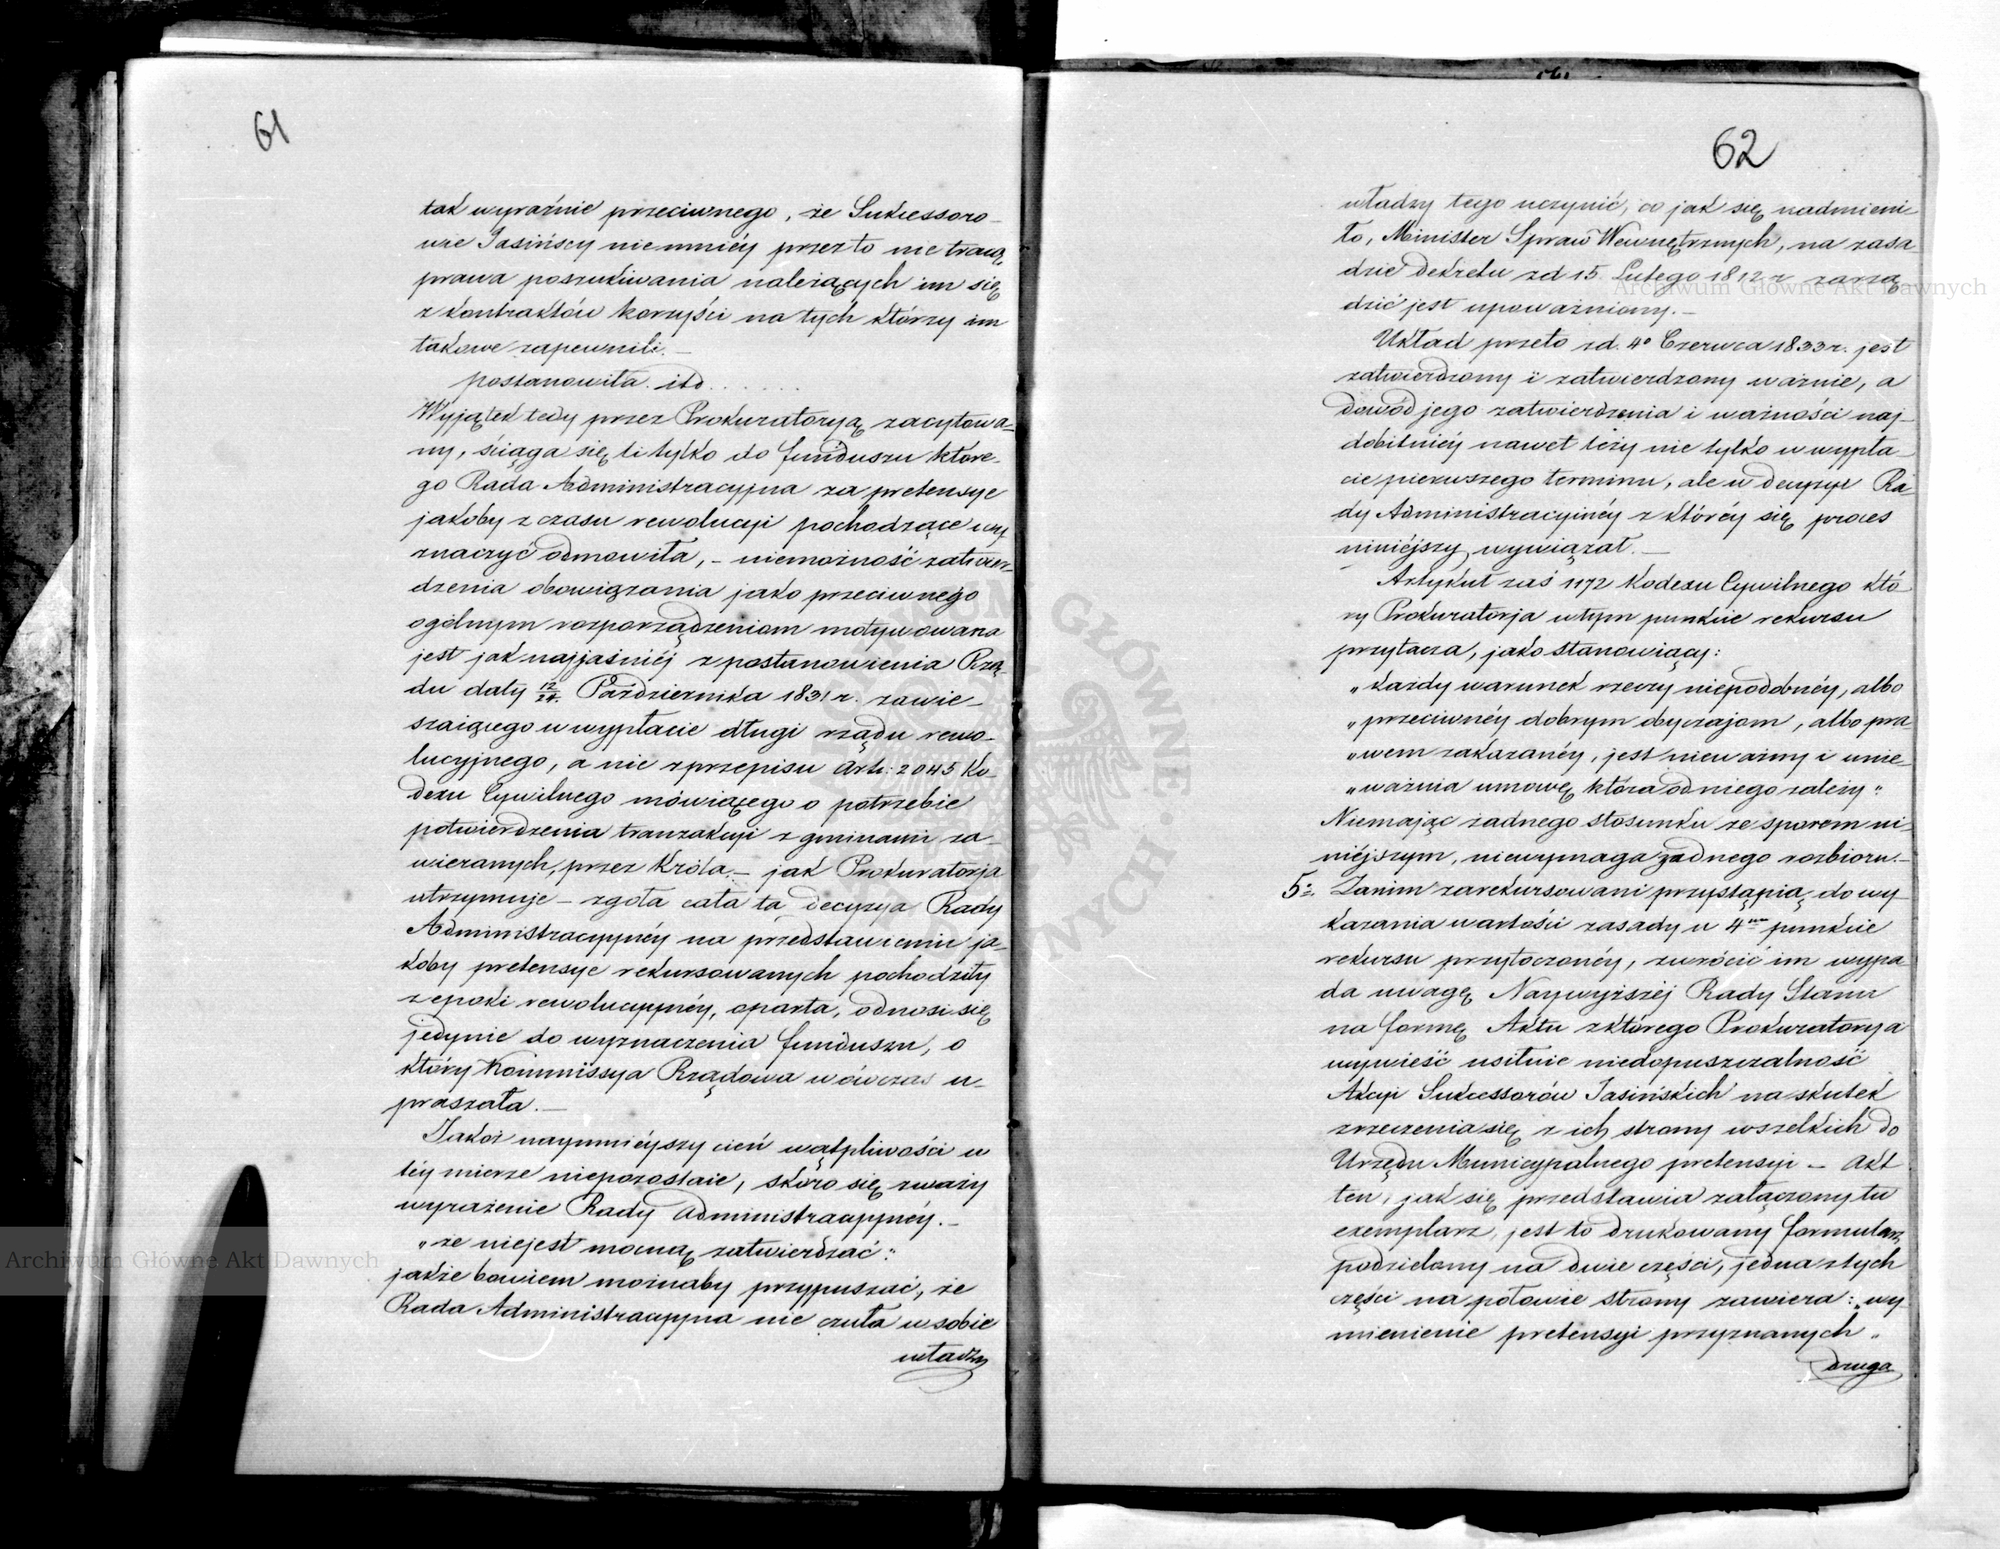 61
tak wyraźnie przeciwnego, że Sukcessoro-
wie Jasińscy niemniéy przez to nie tracą
prawa poszukiwania należących im się
z kontraktów korzyści na tych którzy im
takowe zapewnili.—
postanowiła. itd......
Wyjątek tedy przez Prokuratoryą zacytowa-
ny, ściąga się li tylko do funduszu które-
go Rada Administracyjna za pretensye
jakoby z czasu rewolucyi pochodzące wy
znaczyć odmówiła, – niemożność zatwier-
dzenia obowiązania jako przeciwnego
ogólnym rozporządzeniom motywowana
jest jak najjaśniéj z postanowienia Rzą-
du daty 12/24. Października 1831 r. zawie-
szaiącego w wypłacie długi rządu rewo-
lucyjnego, a nie z przepisu Art: 2045 Ko-
dexu Cywilnego mówiącego o potrzebie
potwierdzenia tranzakcyi z gminami za-
wieranych, przez Króla.— jak Prokuratorja
utrzymuje – zgoła cała ta decyzya Rady
Administracyynéy na przedstawieniu ja-
koby pretensye rekursowanych pochodziły
z epoki rewolucyynéy, oparta, odnosi się
jedynie do wyznaczenia funduszu, o
który Kommissya Rządowa wówczas u-
praszała.—
Jakoż naymnieyszy cień wątpliwości w
téy mierze niepozostaie, skoro się zważy
wyrażenie Rady Administracyynéy.—
„że niejest mocną zatwierdzać:"
jakże bowiem możnaby przypuszczać, że
Rada Administracyyna nie czuła w sobie
władzy
62
władzy tego uczynić, co jak się nadmieni-
ło, Minister Spraw Wewnętrznych, na zasa
dzie dekretu zd 15. Lutego 1812 r zarzą
dzić jest upoważniony.—
Układ przeto zd. 4o Czerwca 1833 r. jest
zatwierdzony i zatwierdzony ważnie, a
dowód jego zatwierdzenia i ważności naj-
dobitniéy nawet leży nie tylko w wypła-
cie pierwszego terminu, ale w decyzyi Ra-
dy Administracyinéy z któréy się proces
niniéjszy wywiązał.—
Artykuł zaś 1172 Kodexu Cywilnego któ-
ry Prokuratorja w tym punkcie rekursu
przytacza, jako stanowiący:
„każdy warunek rzeczy niepodobnéy, albo
„przeciwnéy dobrym obyczajom, albo pra-
„wem zakazanéy, jest nieważny i unie-
„ważnia umowę która od niego zależy"
Niemając żadnego stosunku ze sporem ni-
niéjszym, niewymaga żadnego rozbioru.—
5o. Zanim zarekursowani przystąpią do wy-
kazania wartości zasady w 4m punkcie
rekursu przytoczonéy, zwrócić im wypa-
da uwagę Naywyższéj Rady Stanu
na formę Aktu z którego Prokuratorya
wywieść usiłuie niedopuszczalność
Akcyi Sukcessorów Jasińskich na skutek
zrzeczenia się z ich strony wszelkich do
Urzędu Municypalnego pretensyi – Akt
ten, jak się przedstawia załączony tu
exemplarz, jest to drukowany formularz
podzielony na dwie części, jedna z tych
części na połowie strony zawiera: „wy
mienienie pretensyi przyznanych"
druga
Archiwum Główne Akt Dawnych
Archiwum Główne Akt Dawnych